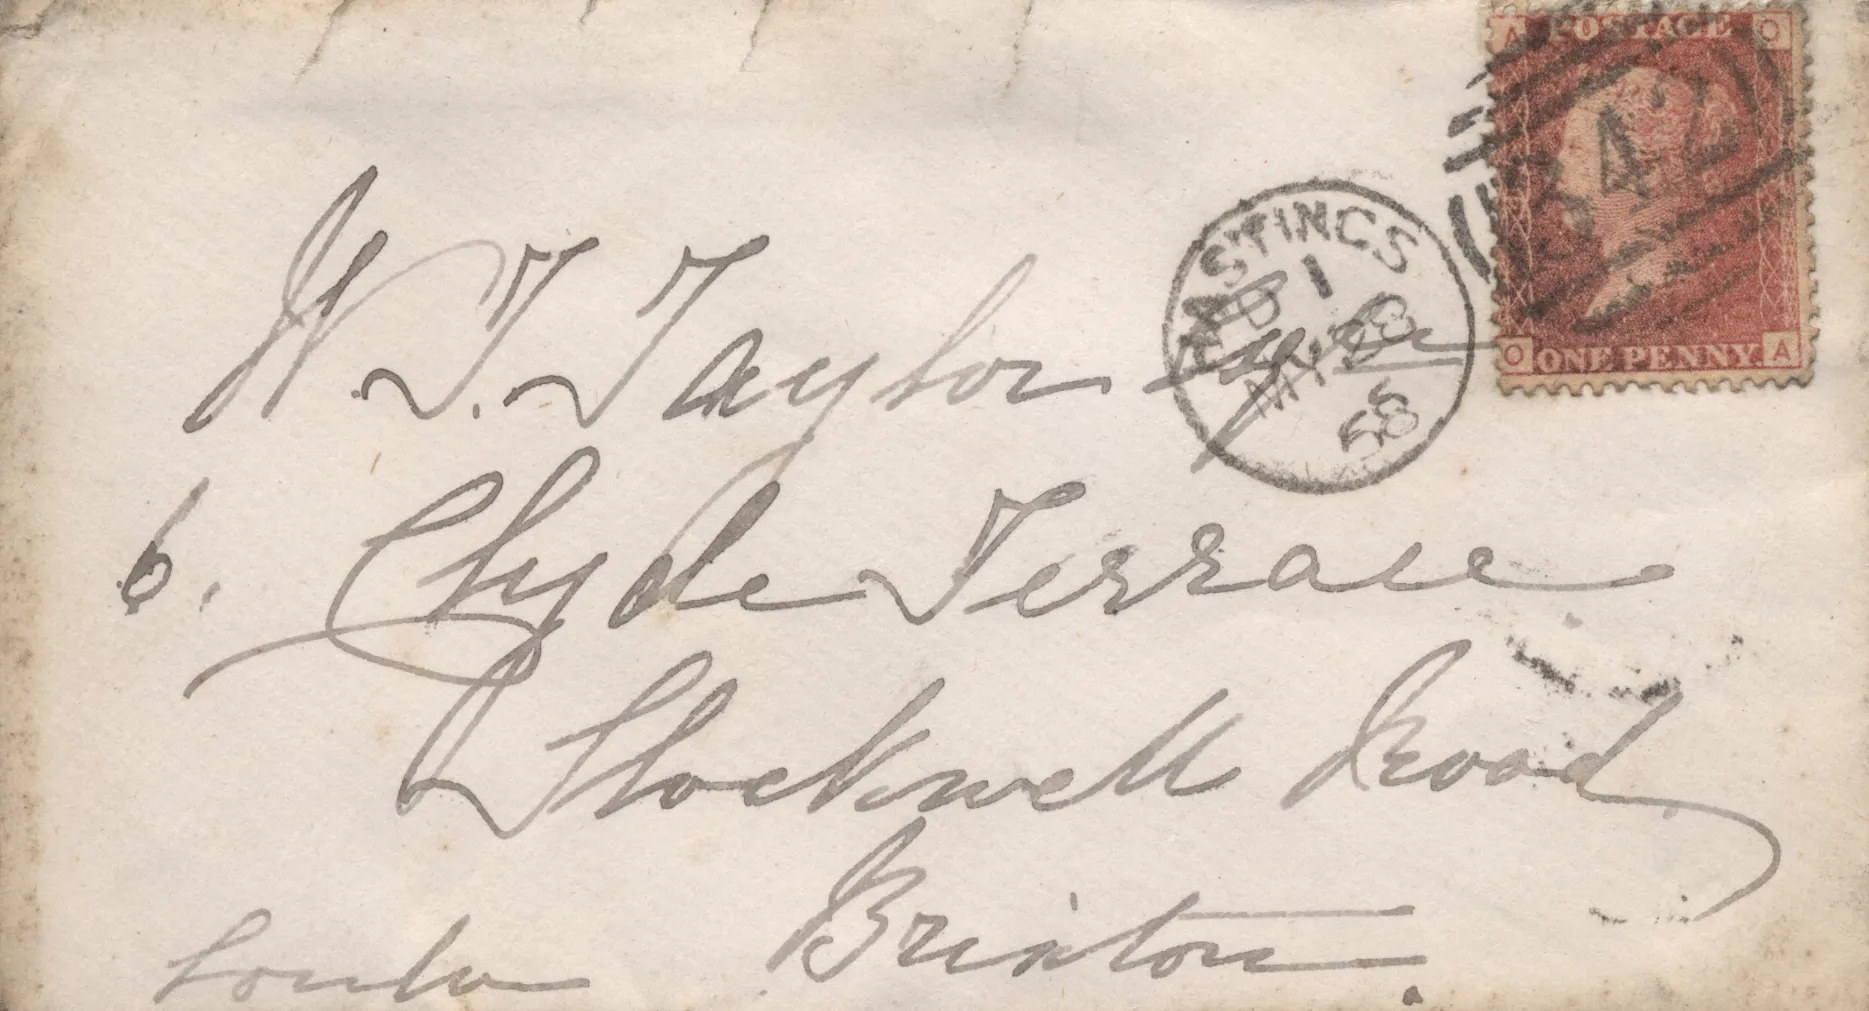 A POSTAGE O
342
O ONE PENNY. A
HASTINGS
D 1
MY 28
68
W. T. Taylor Jun
6. Clyde Terrace
Stockwell Road
Brixton.
London